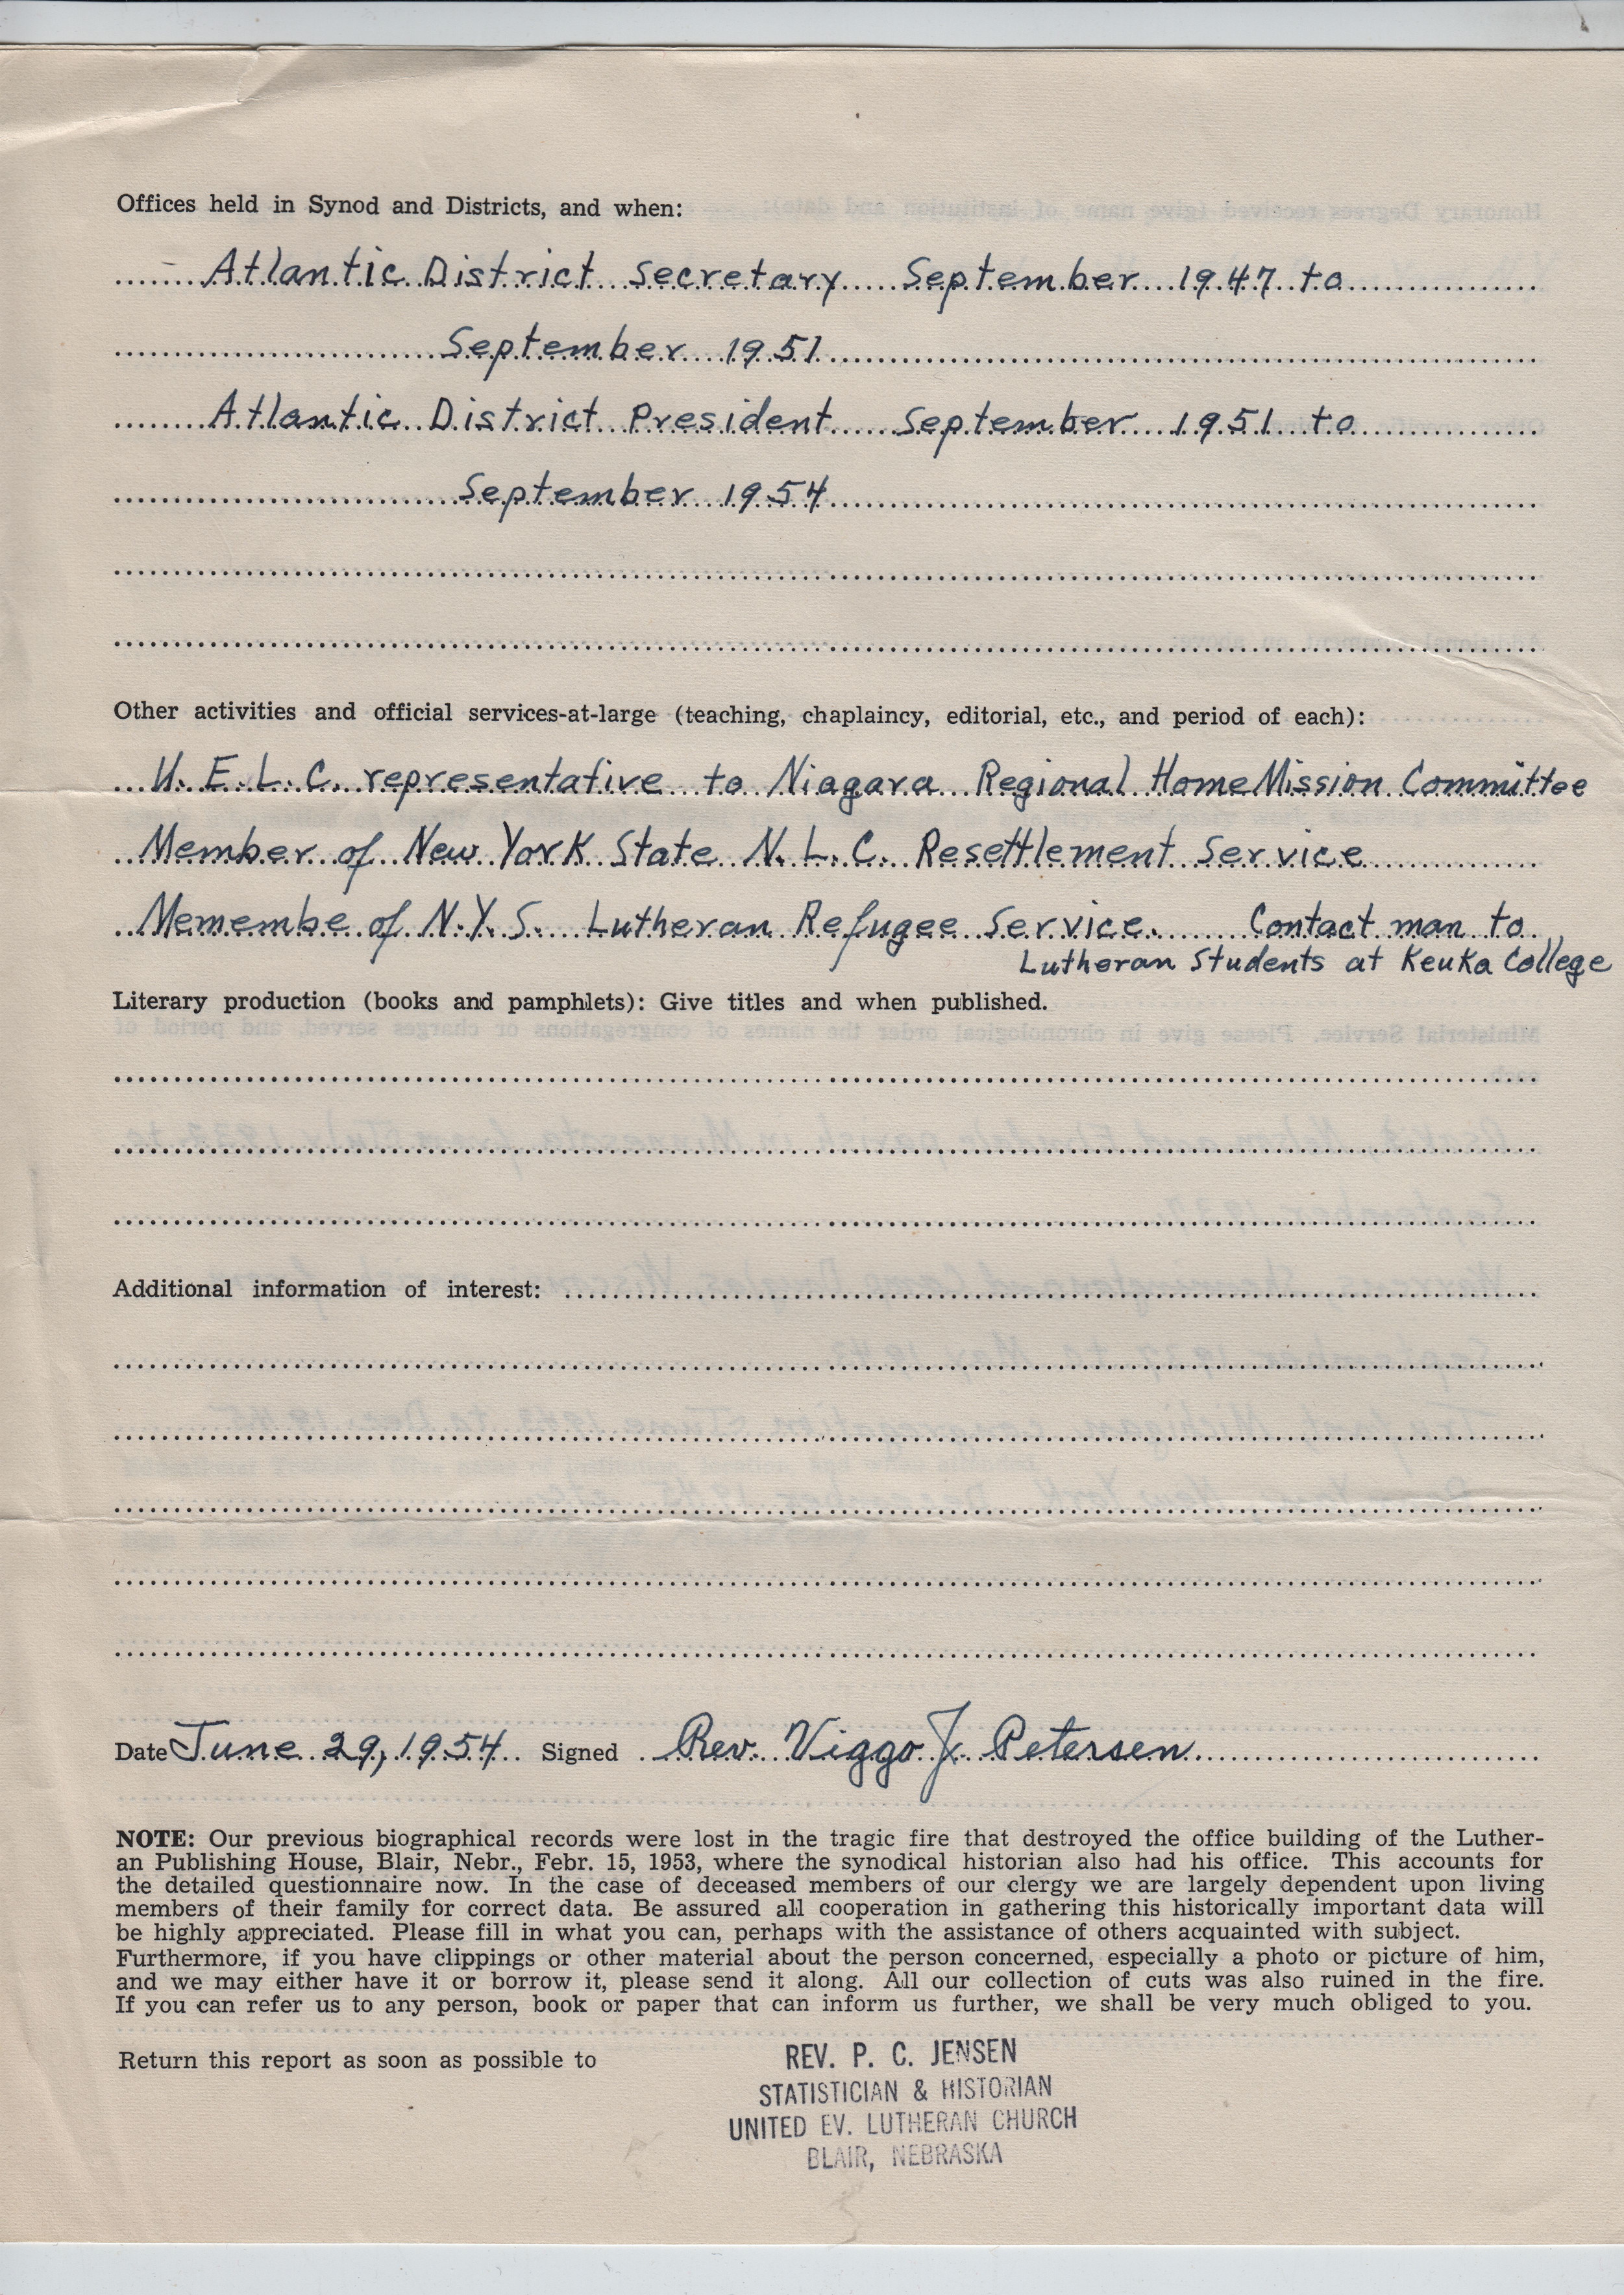 Offices held in Synod and Districts, and when:
Atlantic District Secretary September 1947 to
September 1951
Atlantic District President September 1951 to
September 1954
Other activities and official services-at-large (teaching, chaplaincy, editorial, etc., and period of each):
U.E.L.C. representative to Niagara Regional Home Mission Committee
Member of New York State N.L.C. Resettlement Service
Memembe of N.Y.S. Lutheran Refugee Service. Contact man to
Lutheran Students at Keuka College
Literary production (books and pamphlets): Give titles and when published.
Additional information of interest:
Date June 29, 1954 Signed Rev. Viggo J. Petersen
NOTE: Our previous biographical records were lost in the tragic fire that destroyed the office building of the Luther-
an Publishing House, Blair, Nebr., Febr. 15, 1953, where the synodical historian also had his office. This accounts for
the detailed questionnaire now. In the case of deceased members of our clergy we are largely dependent upon living
members of their family for correct data. Be assured all cooperation in gathering this historically important data will
be highly appreciated. Please fill in what you can, perhaps with the assistance of others acquainted with subject.
Furthermore, if you have clippings or other material about the person concerned, especially a photo or picture of him,
and we may either have it or borrow it, please send it along. All our collection of cuts was also ruined in the fire.
If you can refer us to any person, book or paper that can inform us further, we shall be very much obliged to you.
Return this report as soon as possible to
REV. P. C. JENSEN
STATISTICIAN & HISTORIAN
UNITED EV. LUTHERAN CHURCH
BLAIR, NEBRASKA